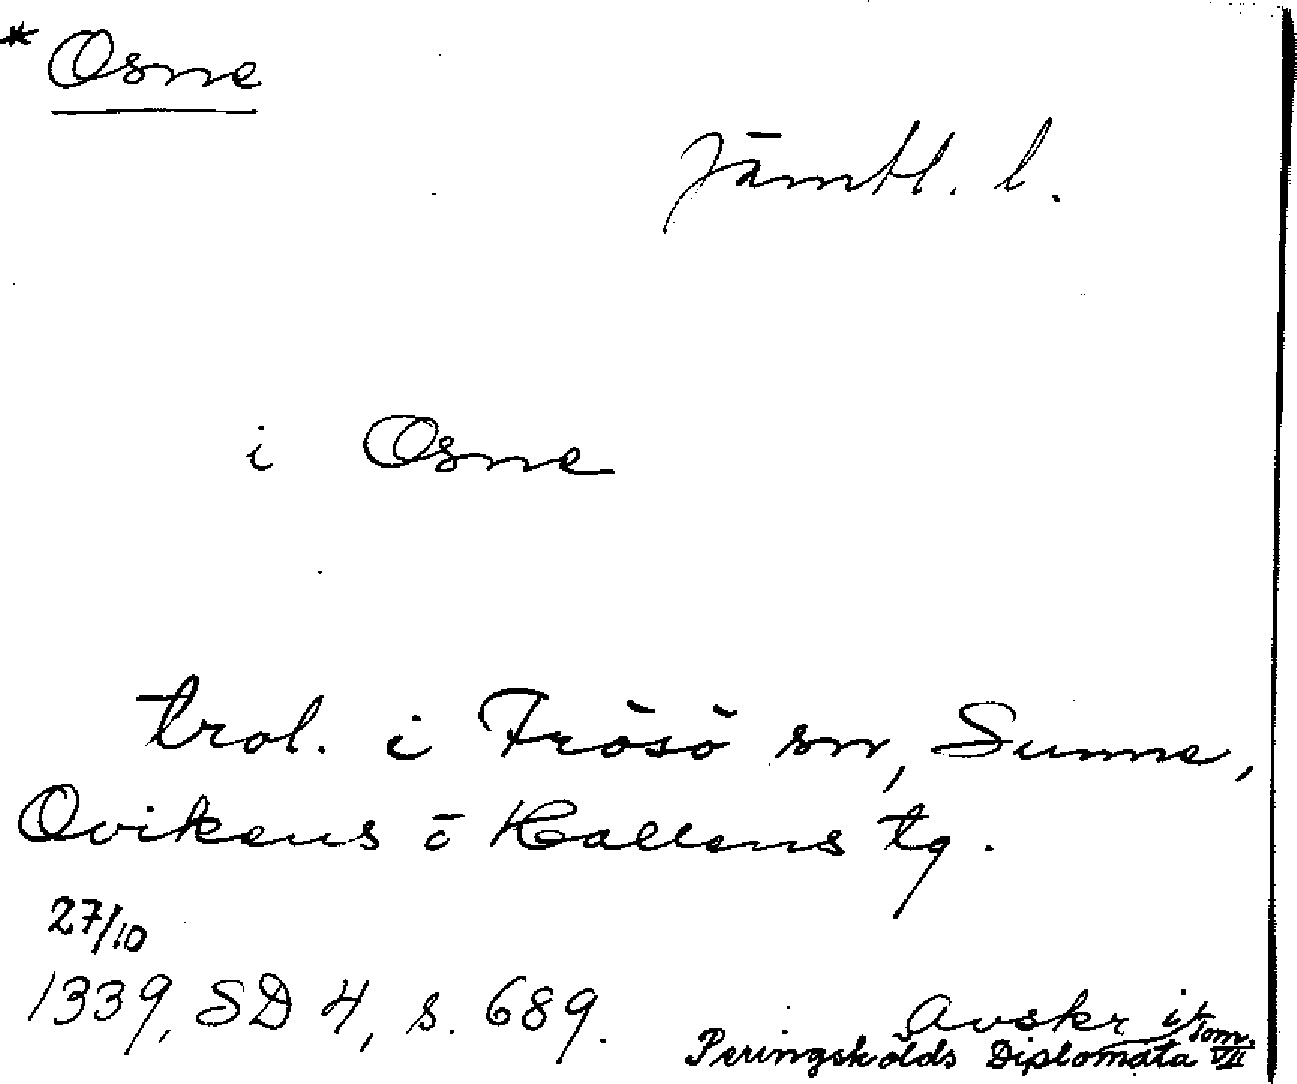 * Osne
Jämtl. l.
i Osne
trol. i Frösö sn, Sunne,
Ovikens o Hallens tg.
27/10
1339, SD 4, s. 689.
Avskr i Tom.
Peringskölds Diplomata VII